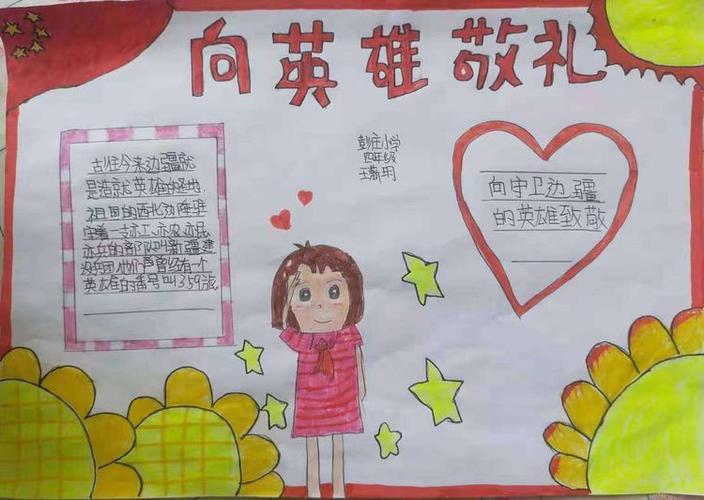 向英雄敬礼
古往今来边疆就
是造就英雄的圣地,
祖国的西北边陲
守着一支亦工、亦农、亦民
亦兵的部队叫新疆建
设兵团,他们曾经有一个
英雄的番号叫359旅.
彭庄小学
四年级
王
向守卫边疆
的英雄致敬